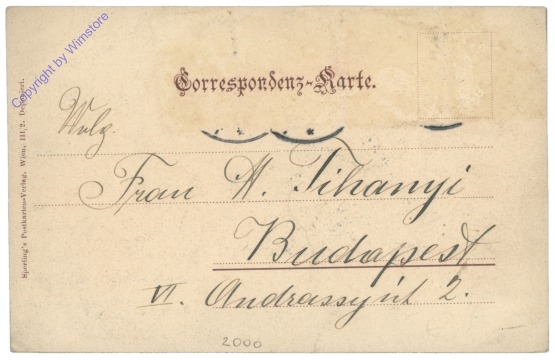 Copyright by Wimstore
Correspondenz-Karte.
Wolg.
Frau A. Tihanyi
Budapest
VI. Andrassyút 2.
2000
Sperling's Postkarten-Verlag, Wien, III/2. Deponiert.